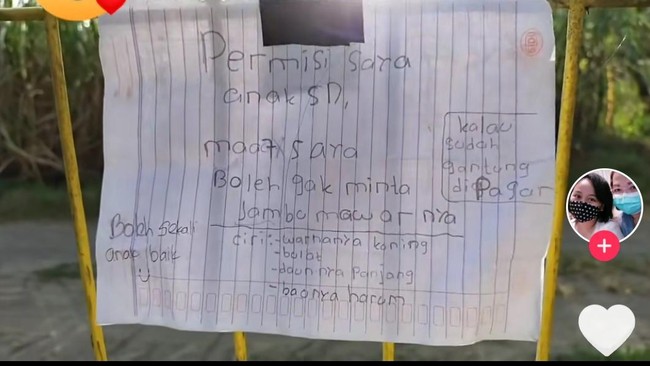 Permisi saya
anak SD,
maaf saya
Boleh gak minta
Jambu mawar nya
kalau
sudah
gantung
di Pagar
Boleh sekali
anak baik
ciri:-warnanya kuning
-bulat
-daunnya panjang
-baunya harum